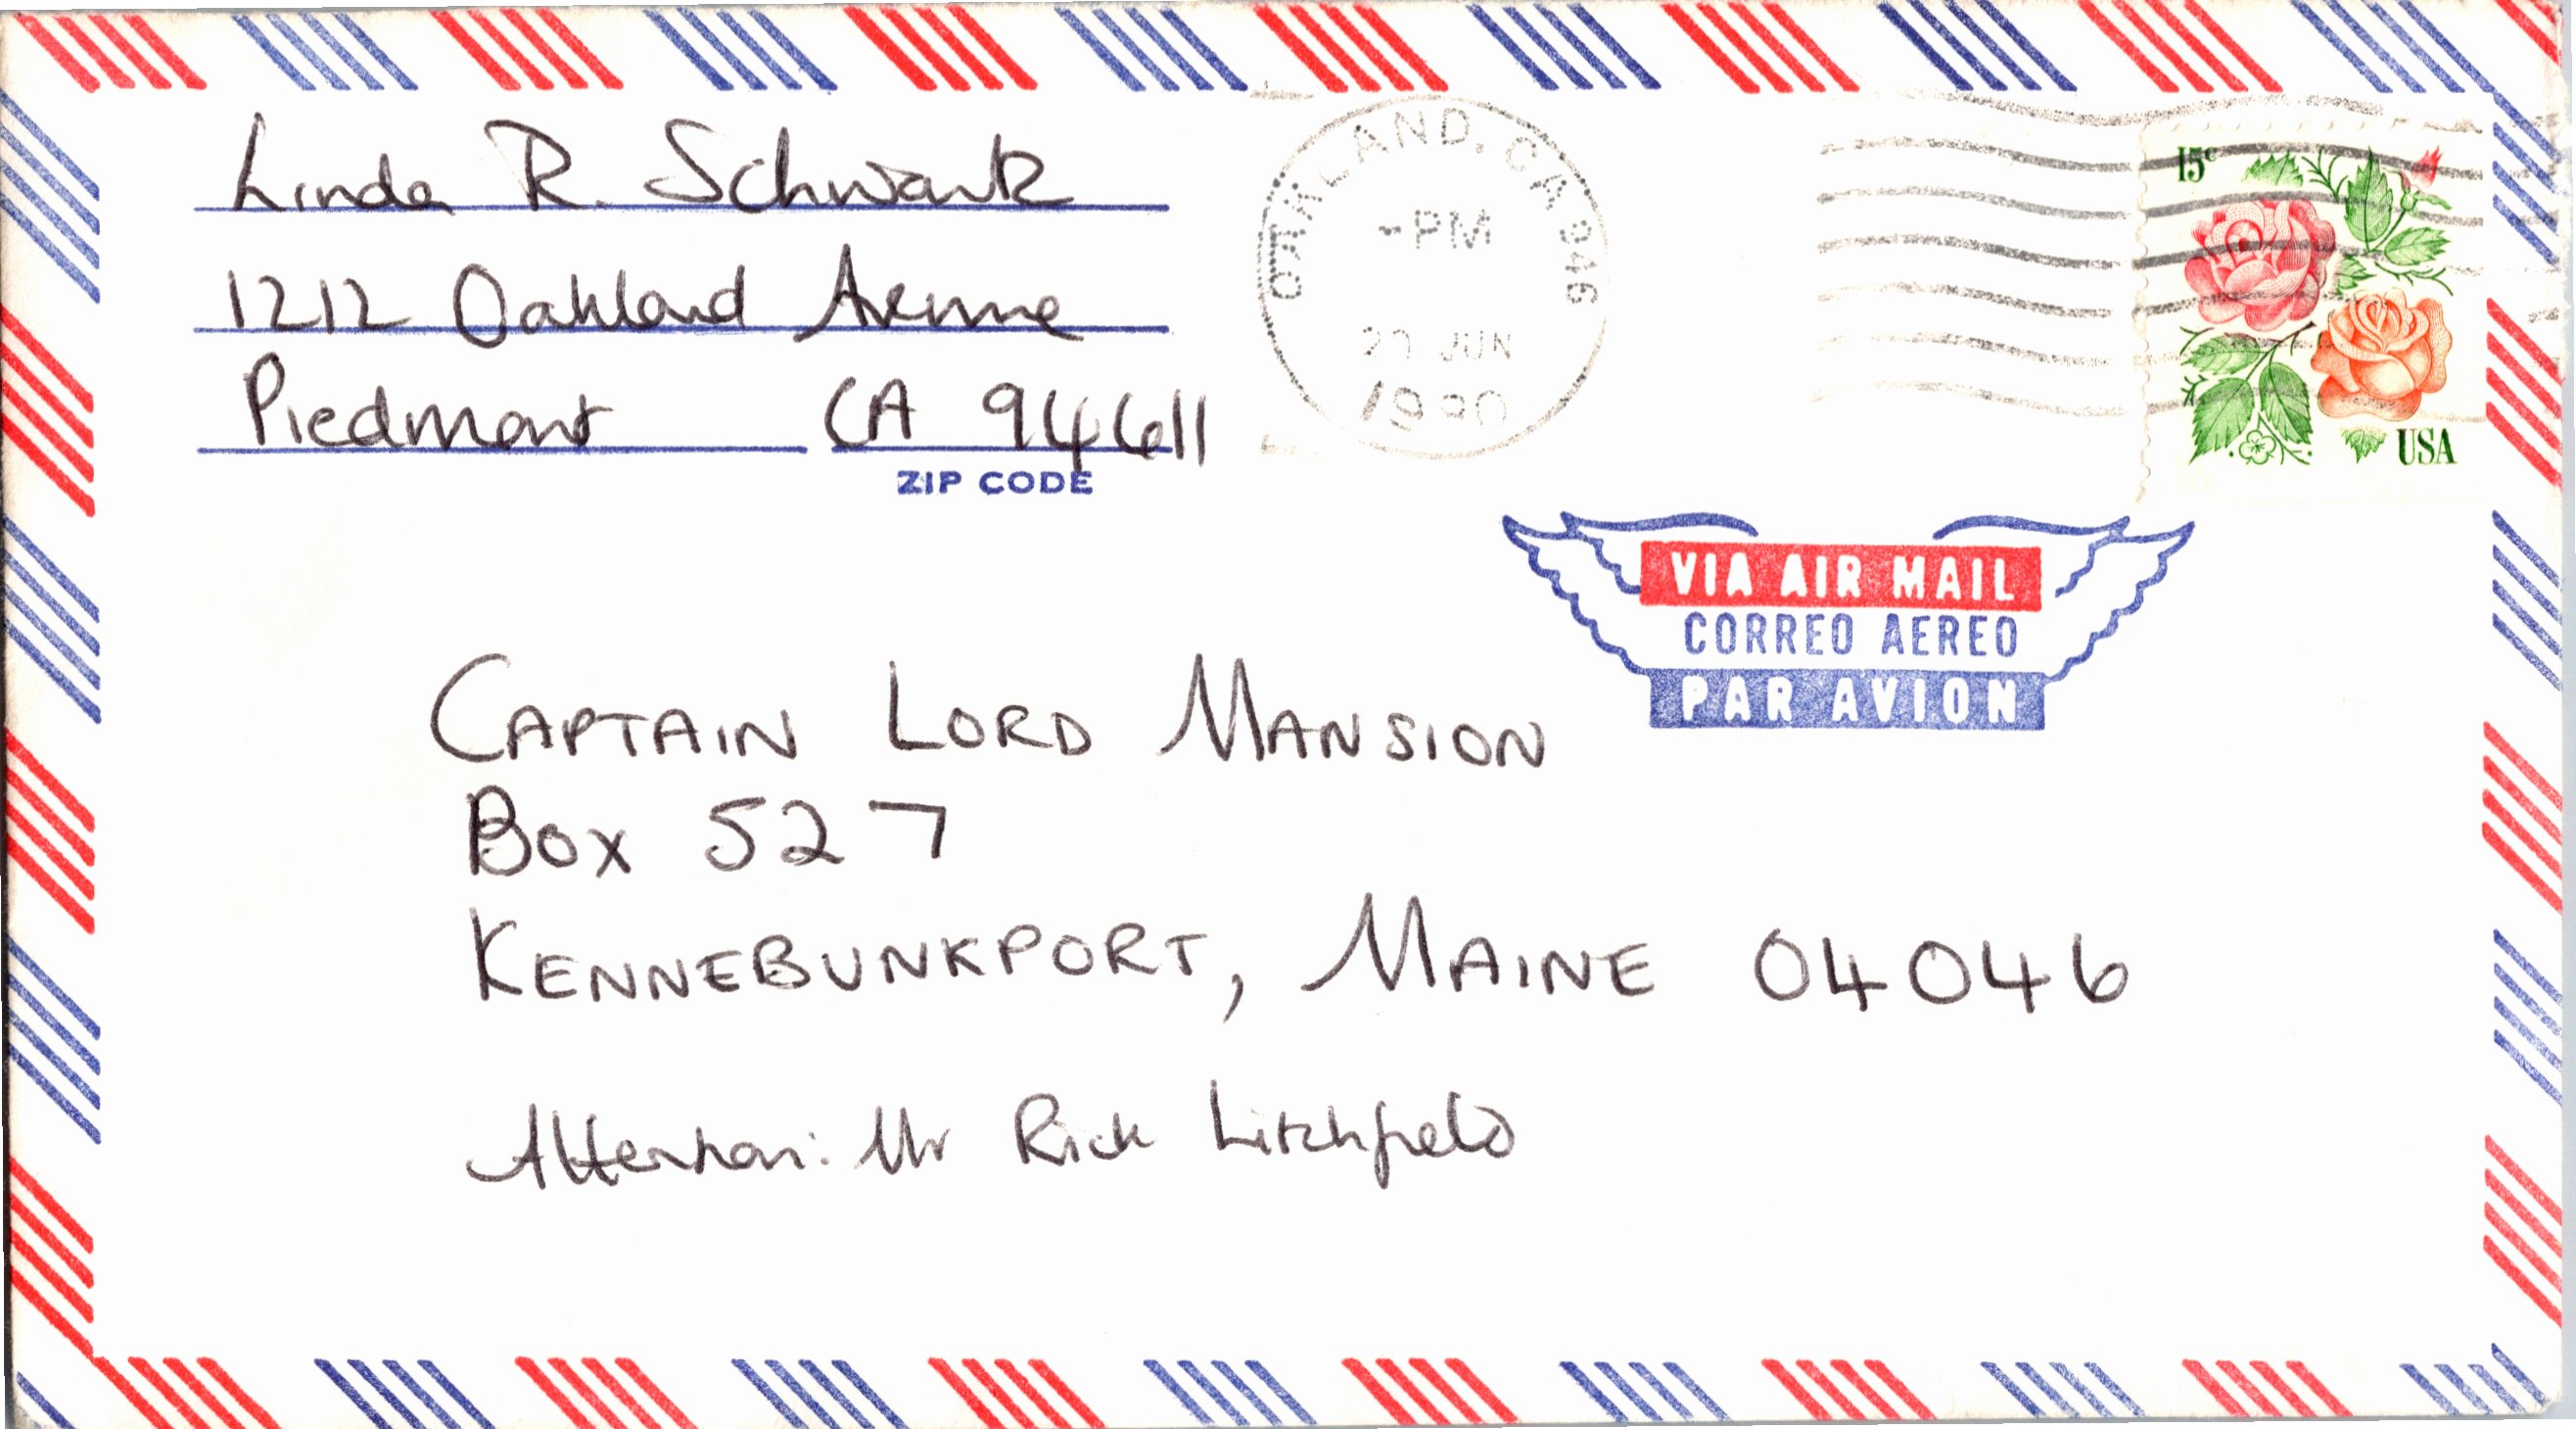 Linda R. Schwartz
1212 Oakland Avenue
Piedmont CA 94611
ZIP CODE
OAKLAND, CA 946
PM
JUN
15c
USA
VIA AIR MAIL
CORREO AEREO
PAR AVION
CAPTAIN LORD MANSION
BOX 527
KENNEBUNKPORT, MAINE 04046
Attention: Mr Rick Litchfield